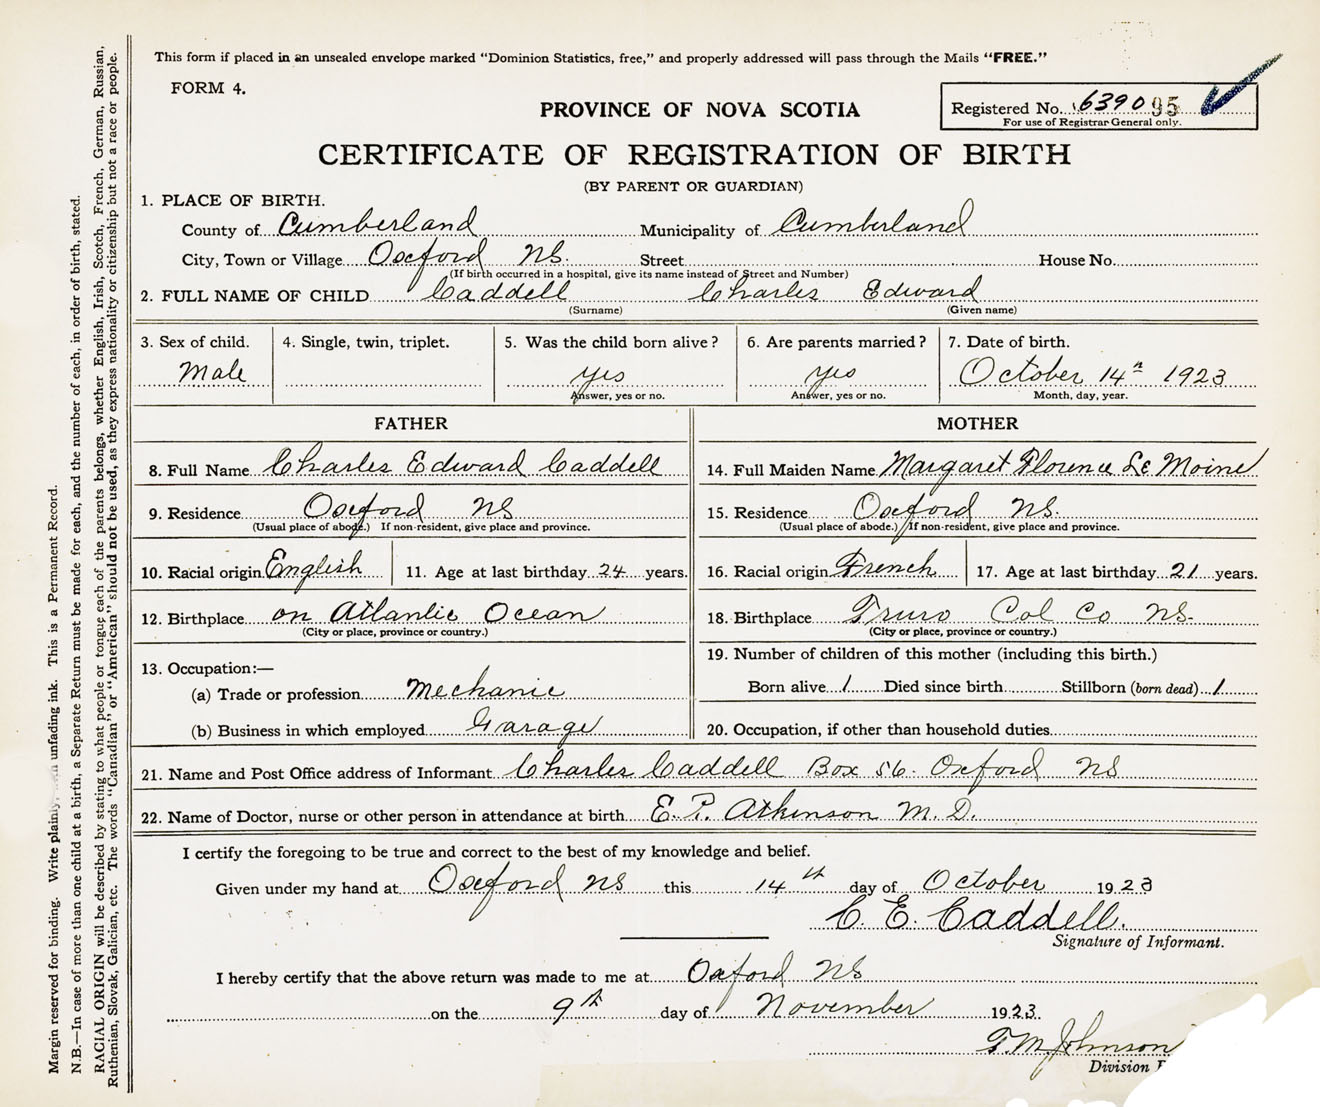 This form if placed in an unsealed envelope marked "Dominion Statistics, free," and properly addressed will pass through the Mails "FREE."
FORM 4.
Registered No. 639095
For use of Registrar General only.
PROVINCE OF NOVA SCOTIA
CERTIFICATE OF REGISTRATION OF BIRTH
(BY PARENT OR GUARDIAN)
1. PLACE OF BIRTH.
County of Cumberland Municipality of Cumberland
City, Town or Village Oxford NS. Street House No.
(If birth occurred in a hospital, give its name instead of Street and Number)
2. FULL NAME OF CHILD Caddell Charles Edward
(Surname) (Given name)
3. Sex of child. 4. Single, twin, triplet. 5. Was the child born alive? 6. Are parents married? 7. Date of birth.
Male yes yes October 14th 1923
Answer, yes or no. Answer, yes or no. Month, day, year.
FATHER MOTHER
8. Full Name Charles Edward Caddell 14. Full Maiden Name Margaret Florence Le Moine
9. Residence Oxford NS 15. Residence Oxford NS.
(Usual place of abode.) If non-resident, give place and province. (Usual place of abode.) If non-resident, give place and province.
10. Racial origin English 11. Age at last birthday 24 years. 16. Racial origin French 17. Age at last birthday 21 years.
12. Birthplace on Atlantic Ocean 18. Birthplace Truro Col Co NS.
(City or place, province or country.) (City or place, province or country.)
13. Occupation:— 19. Number of children of this mother (including this birth.)
(a) Trade or profession Mechanic Born alive 1 Died since birth Stillborn (born dead) 1
(b) Business in which employed Garage 20. Occupation, if other than household duties
21. Name and Post Office address of Informant Charles Caddell Box 56. Oxford NS
22. Name of Doctor, nurse or other person in attendance at birth E. P. Atkinson M. D.
I certify the foregoing to be true and correct to the best of my knowledge and belief.
Given under my hand at Oxford NS this 14th day of October 1923
C. E. Caddell.
Signature of Informant.
I hereby certify that the above return was made to me at Oxford NS
on the 9th day of November 1923.
T. M. Johnson
Division
Margin reserved for binding. Write plainly, unfading ink. This is a Permanent Record.
N.B.—In case of more than one child at a birth, a Separate Return must be made for each, and the number of each, in order of birth, stated.
RACIAL ORIGIN will be described by stating to what people or tongue each of the parents belongs, whether English, Irish, Scotch, French, German, Russian,
Ruthenian, Slovak, Galician, etc. The words "Canadian" or "American" should not be used, as they express nationality or citizenship but not a race or people.